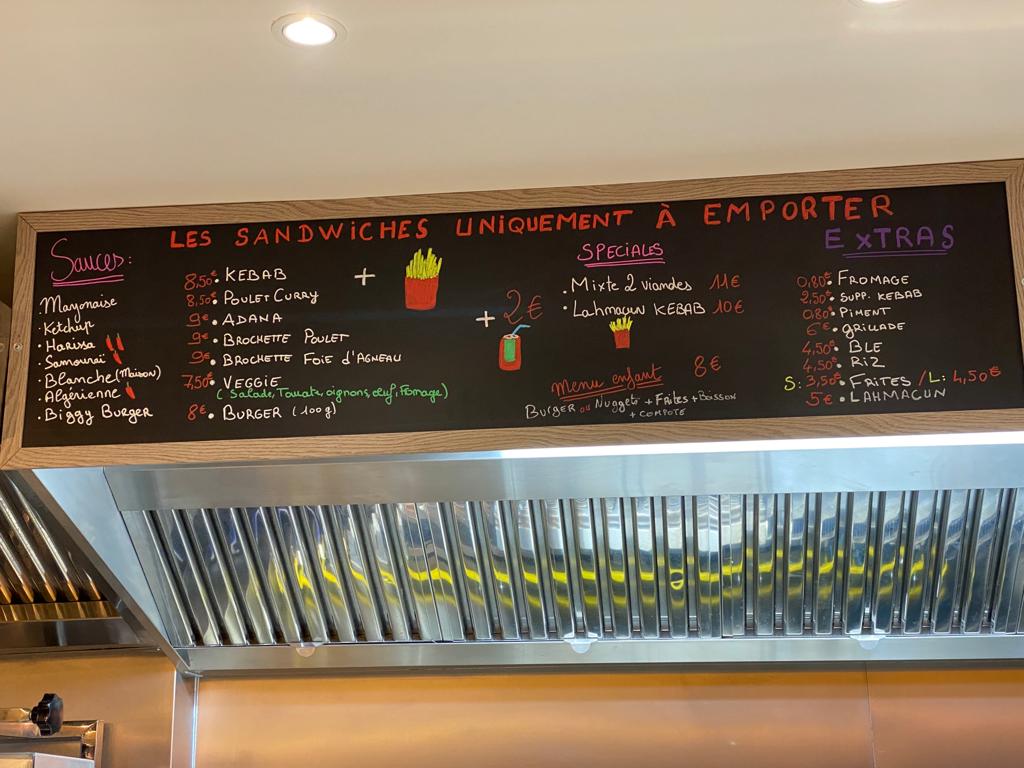 LES SANDWiCHES UNIQUEMENT À EMPORTER
Sauces:
· Mayonaise
· Ketchup
· Harissa
· Samouraï
· Blanche (Maison)
· Algérienne
· Biggy Burger
8,50€ • KEBAB +
8,50€ • POULET CURRY
9€ • ADANA
9€ • BROCHETTE POULET
9€ • BROCHETTE FOIE d'AGNEAU
7,50€ • VEGGIE
(Salade, Tomate, oignons, œuf, Fromage)
8€ • BURGER (100g)
+ 2€
SPECIALES
• Mixte 2 viandes 11€
• Lahmacun KEBAB 10€
Menu enfant 8€
BURGER ou Nuggets + Frites + BOISSON
+ COMPOTE
ExTRAS
0,80€ • FROMAGE
2,50€ • SUPP. KEBAB
0,80€ • PIMENT
6€ • GRILLADE
4,50€ • BLE
4,50€ • RiZ
S: 3,50€ • FRITES / L: 4,50€
5€ • LAHMACUN